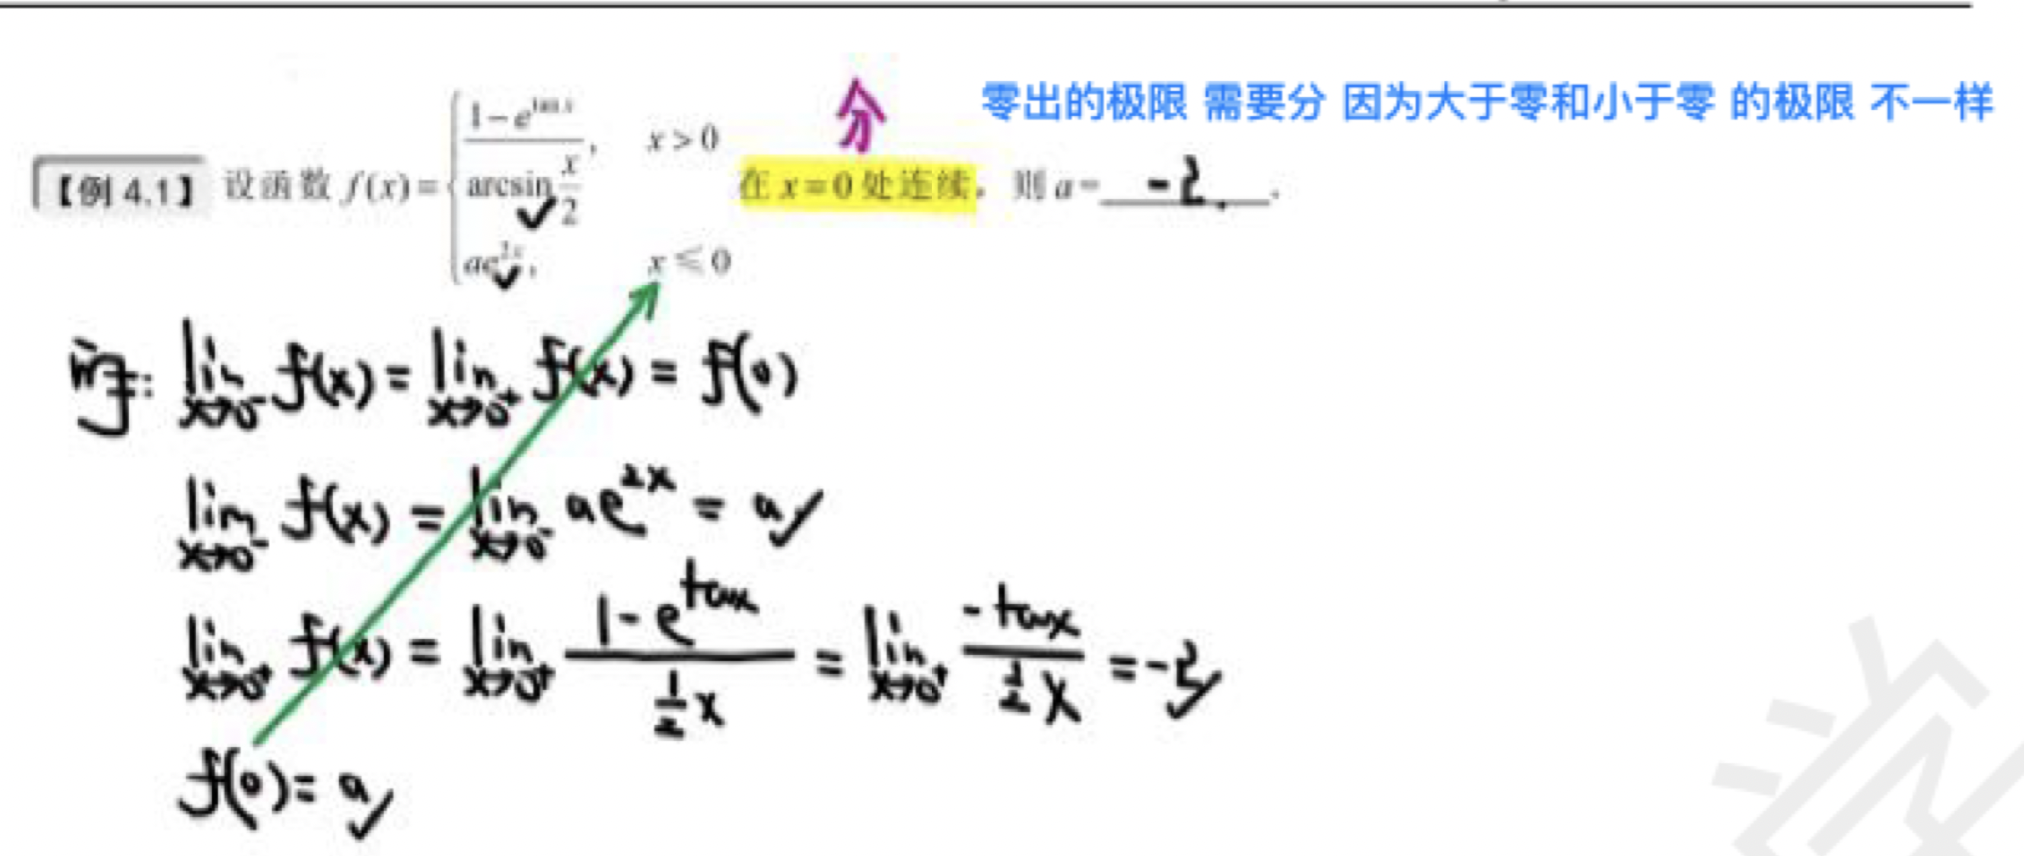 分 零出的极限 需要分 因为大于零和小于零 的极限 不一样
【例 4.1】 设函数 f(x)= { (1-e^{tan x})/(arcsin x/2), x>0 在 x=0 处连续, 则 a= -2 .
ae^{2x}, x≤0
lim x→0⁻ f(x) = lim x→0⁺ f(x) = f(0)
lim x→0⁻ f(x) = lim x→0⁻ ae^{2x} = a
lim x→0⁺ f(x) = lim x→0⁺ (1-e^{tanx})/(½x) = lim x→0⁺ (-tanx)/(½x) = -2
f(0)= a